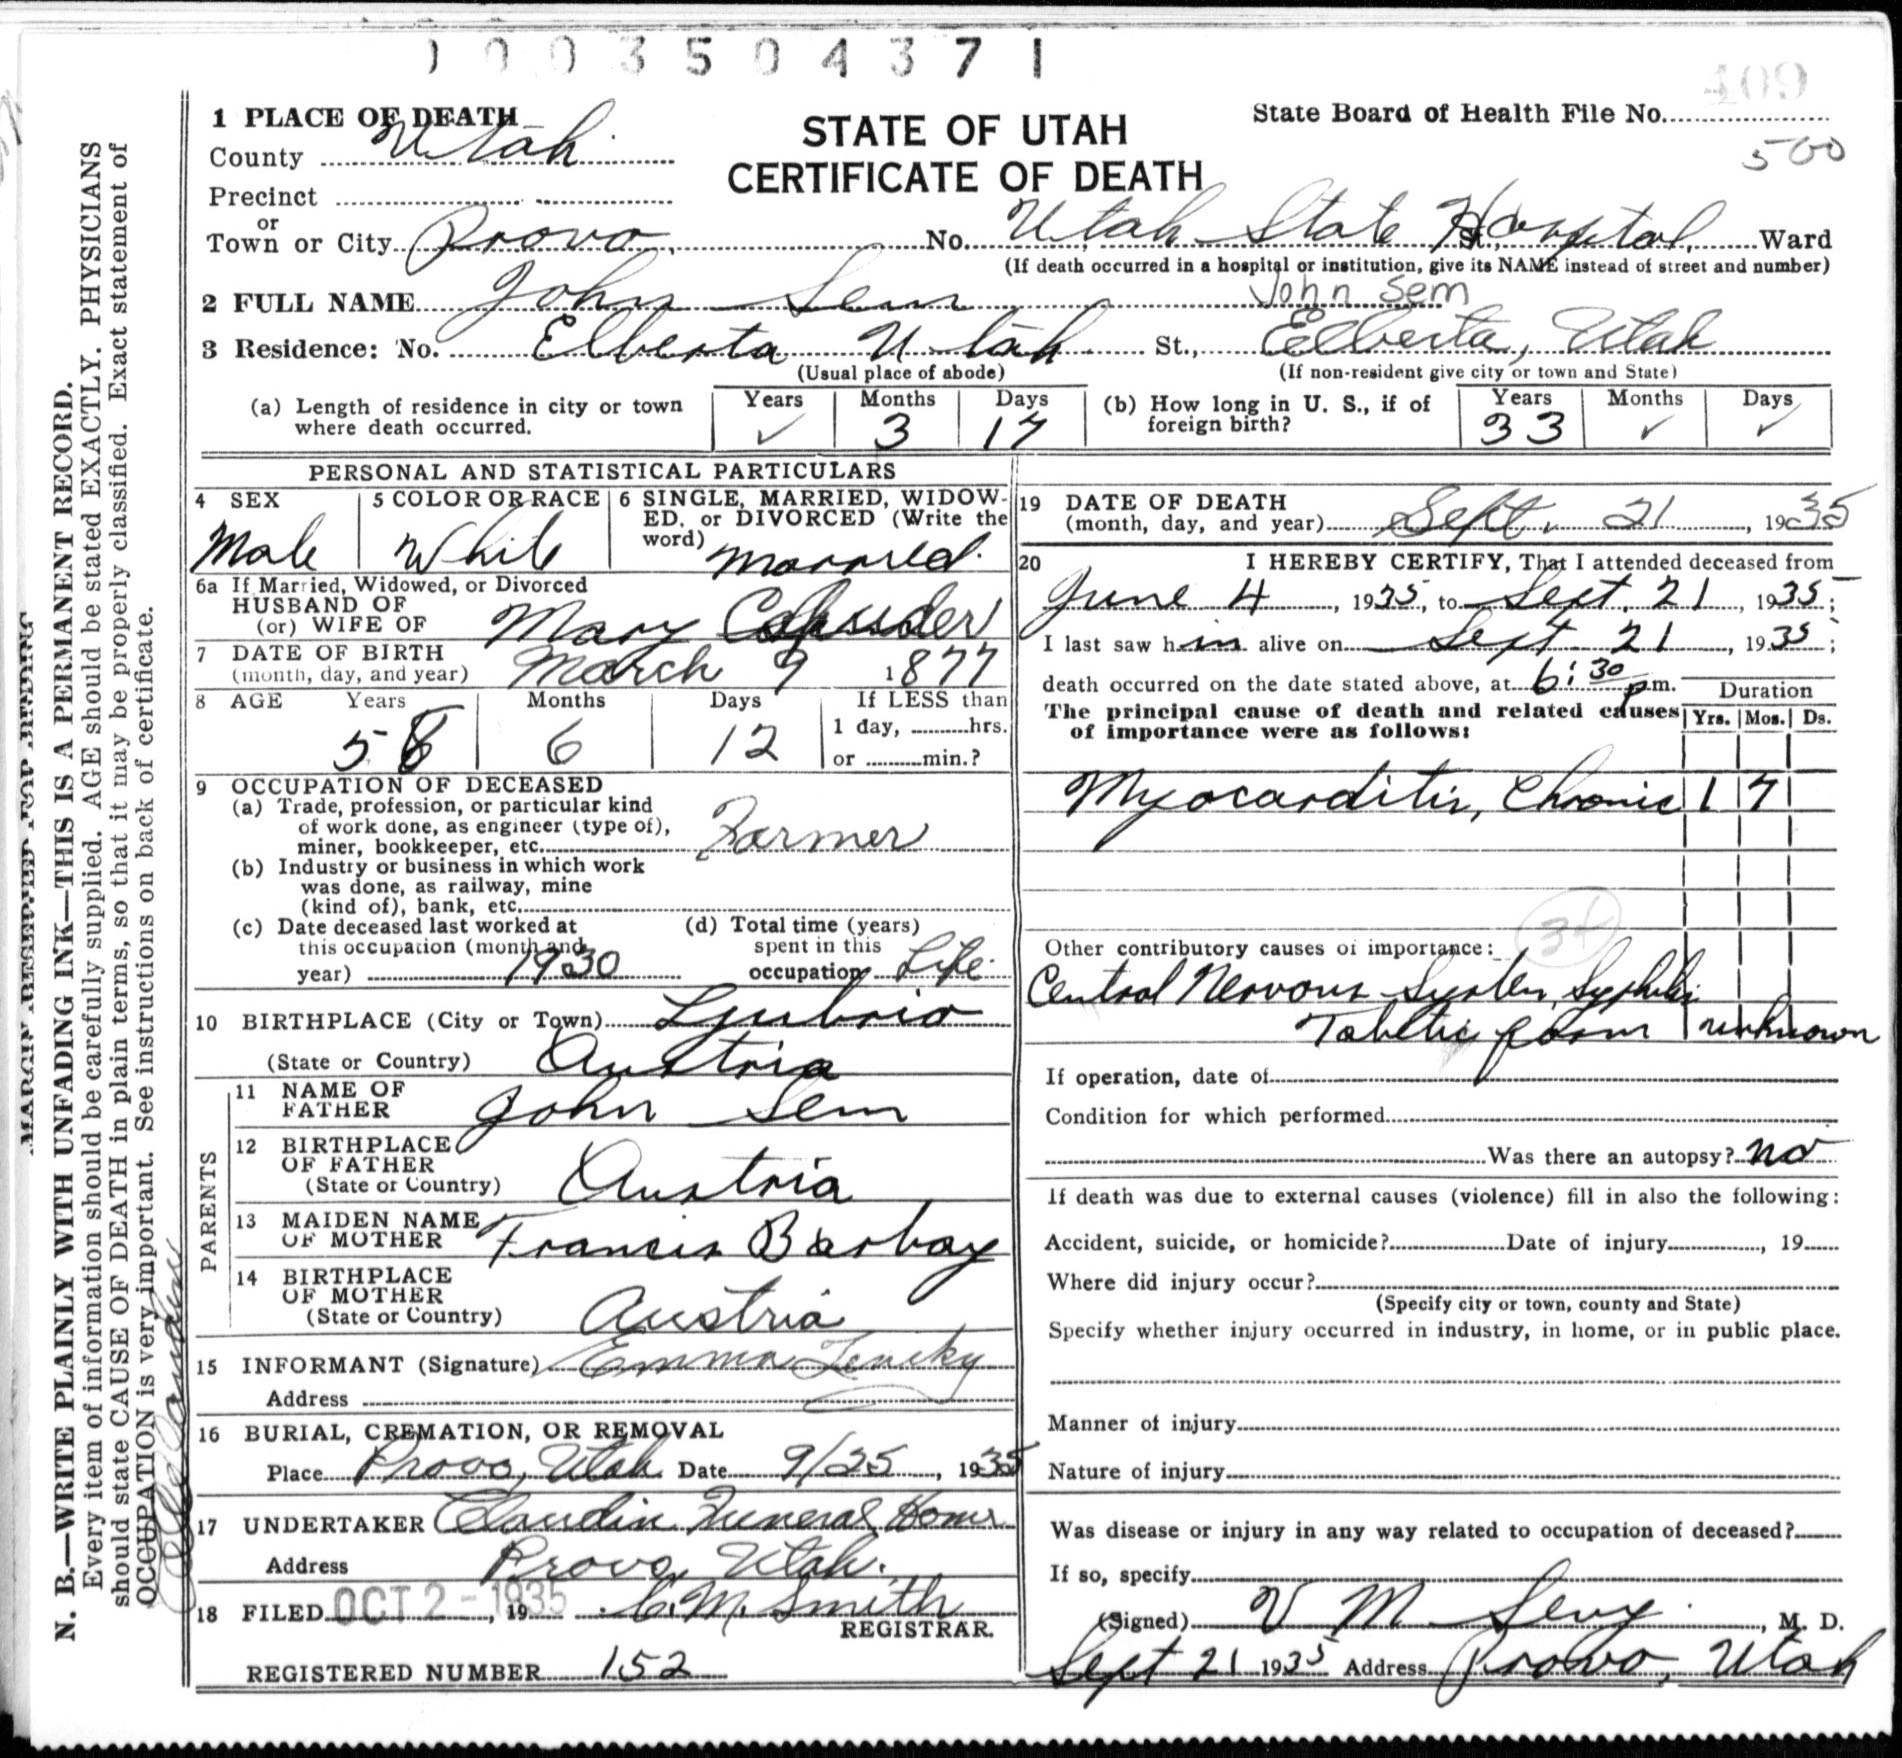 1003504371
409
1 PLACE OF DEATH
STATE OF UTAH
CERTIFICATE OF DEATH
State Board of Health File No.
500
County Utah
Precinct
or
Town or City Provo, No. Utah State Hospital, St., Ward
(If death occurred in a hospital or institution, give its NAME instead of street and number)
2 FULL NAME John Sem John Sem
3 Residence: No. Elberta Utah St., Elberta, Utah
(Usual place of abode) (If non-resident give city or town and State)
(a) Length of residence in city or town where death occurred. Years ✓ Months 3 Days 17
(b) How long in U. S., if of foreign birth? Years 33 Months ✓ Days ✓
PERSONAL AND STATISTICAL PARTICULARS
4 SEX Male
5 COLOR OR RACE White
6 SINGLE, MARRIED, WIDOW-
ED, or DIVORCED (Write the
word) Married.
6a If Married, Widowed, or Divorced
HUSBAND OF
(or) WIFE OF Mary
7 DATE OF BIRTH
(month, day, and year) March 9 1877
8 AGE Years 58 Months 6 Days 12 If LESS than
1 day, hrs.
or min.?
9 OCCUPATION OF DECEASED
(a) Trade, profession, or particular kind
of work done, as engineer (type of),
miner, bookkeeper, etc. Farmer
(b) Industry or business in which work
was done, as railway, mine
(kind of), bank, etc.
(c) Date deceased last worked at
this occupation (month and
year) 1930
(d) Total time (years)
spent in this
occupation Life.
10 BIRTHPLACE (City or Town)
(State or Country) Austria
PARENTS
11 NAME OF
FATHER John Sem
12 BIRTHPLACE
OF FATHER
(State or Country) Austria
13 MAIDEN NAME
OF MOTHER Francis Barbay
14 BIRTHPLACE
OF MOTHER
(State or Country) Austria
15 INFORMANT (Signature) Emma
Address
16 BURIAL, CREMATION, OR REMOVAL
Place Provo, Utah Date 9/25, 1935
17 UNDERTAKER Claudin Funeral Home
Address Provo, Utah.
18 FILED OCT 2 - 1935, 19 C. M. Smith
REGISTRAR.
REGISTERED NUMBER 152
19 DATE OF DEATH
(month, day, and year) Sept. 21, 1935
20 I HEREBY CERTIFY, That I attended deceased from
June 4, 1935, to Sept. 21, 1935;
I last saw him alive on Sept 21, 1935;
death occurred on the date stated above, at 6:30 p.m.
Duration
The principal cause of death and related causes
of importance were as follows:
Yrs. Mos. Ds.
Myocarditis, Chronic 1 7
34
Other contributory causes of importance:
Central Nervous System, Syphilis
Tabetic form unknown
If operation, date of
Condition for which performed
Was there an autopsy? no
If death was due to external causes (violence) fill in also the following:
Accident, suicide, or homicide? Date of injury, 19
Where did injury occur?
(Specify city or town, county and State)
Specify whether injury occurred in industry, in home, or in public place.
Manner of injury
Nature of injury
Was disease or injury in any way related to occupation of deceased?
If so, specify
(Signed) V M Sevy, M. D.
Sept 21 1935 Address Provo, Utah
MARGIN RESERVED FOR BINDING
N. B.—WRITE PLAINLY WITH UNFADING INK—THIS IS A PERMANENT RECORD.
Every item of information should be carefully supplied. AGE should be stated EXACTLY. PHYSICIANS
should state CAUSE OF DEATH in plain terms, so that it may be properly classified. Exact statement of
OCCUPATION is very important. See instructions on back of certificate.